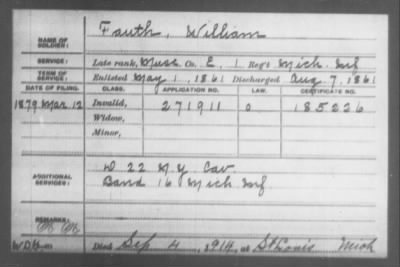 NAME OF SOLDIER: Fauth, William
SERVICE: Late rank, Musc. Co. E, 1 Reg't Mich. Inf
TERM OF SERVICE: Enlisted May 1, 1861 Discharged Aug. 7, 1861
DATE OF FILING. CLASS. APPLICATION NO. LAW. CERTIFICATE NO.
1879 Mar. 12 Invalid, 271911 0 185226
Widow,
Minor,
ADDITIONAL SERVICES: D 22 N.Y. Cav.
Band 16 Mich Inf
REMARKS:
Died Sep 4, 1914, at St Louis Mich